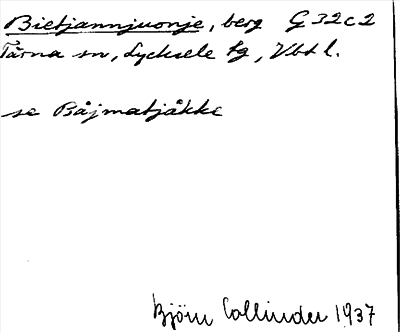 Bietjannjuonje, berg G 32 c 2
Tärna sn, Lycksele lg, Vbtl.
se Båjmatjåkke
Björn Collinder 1937